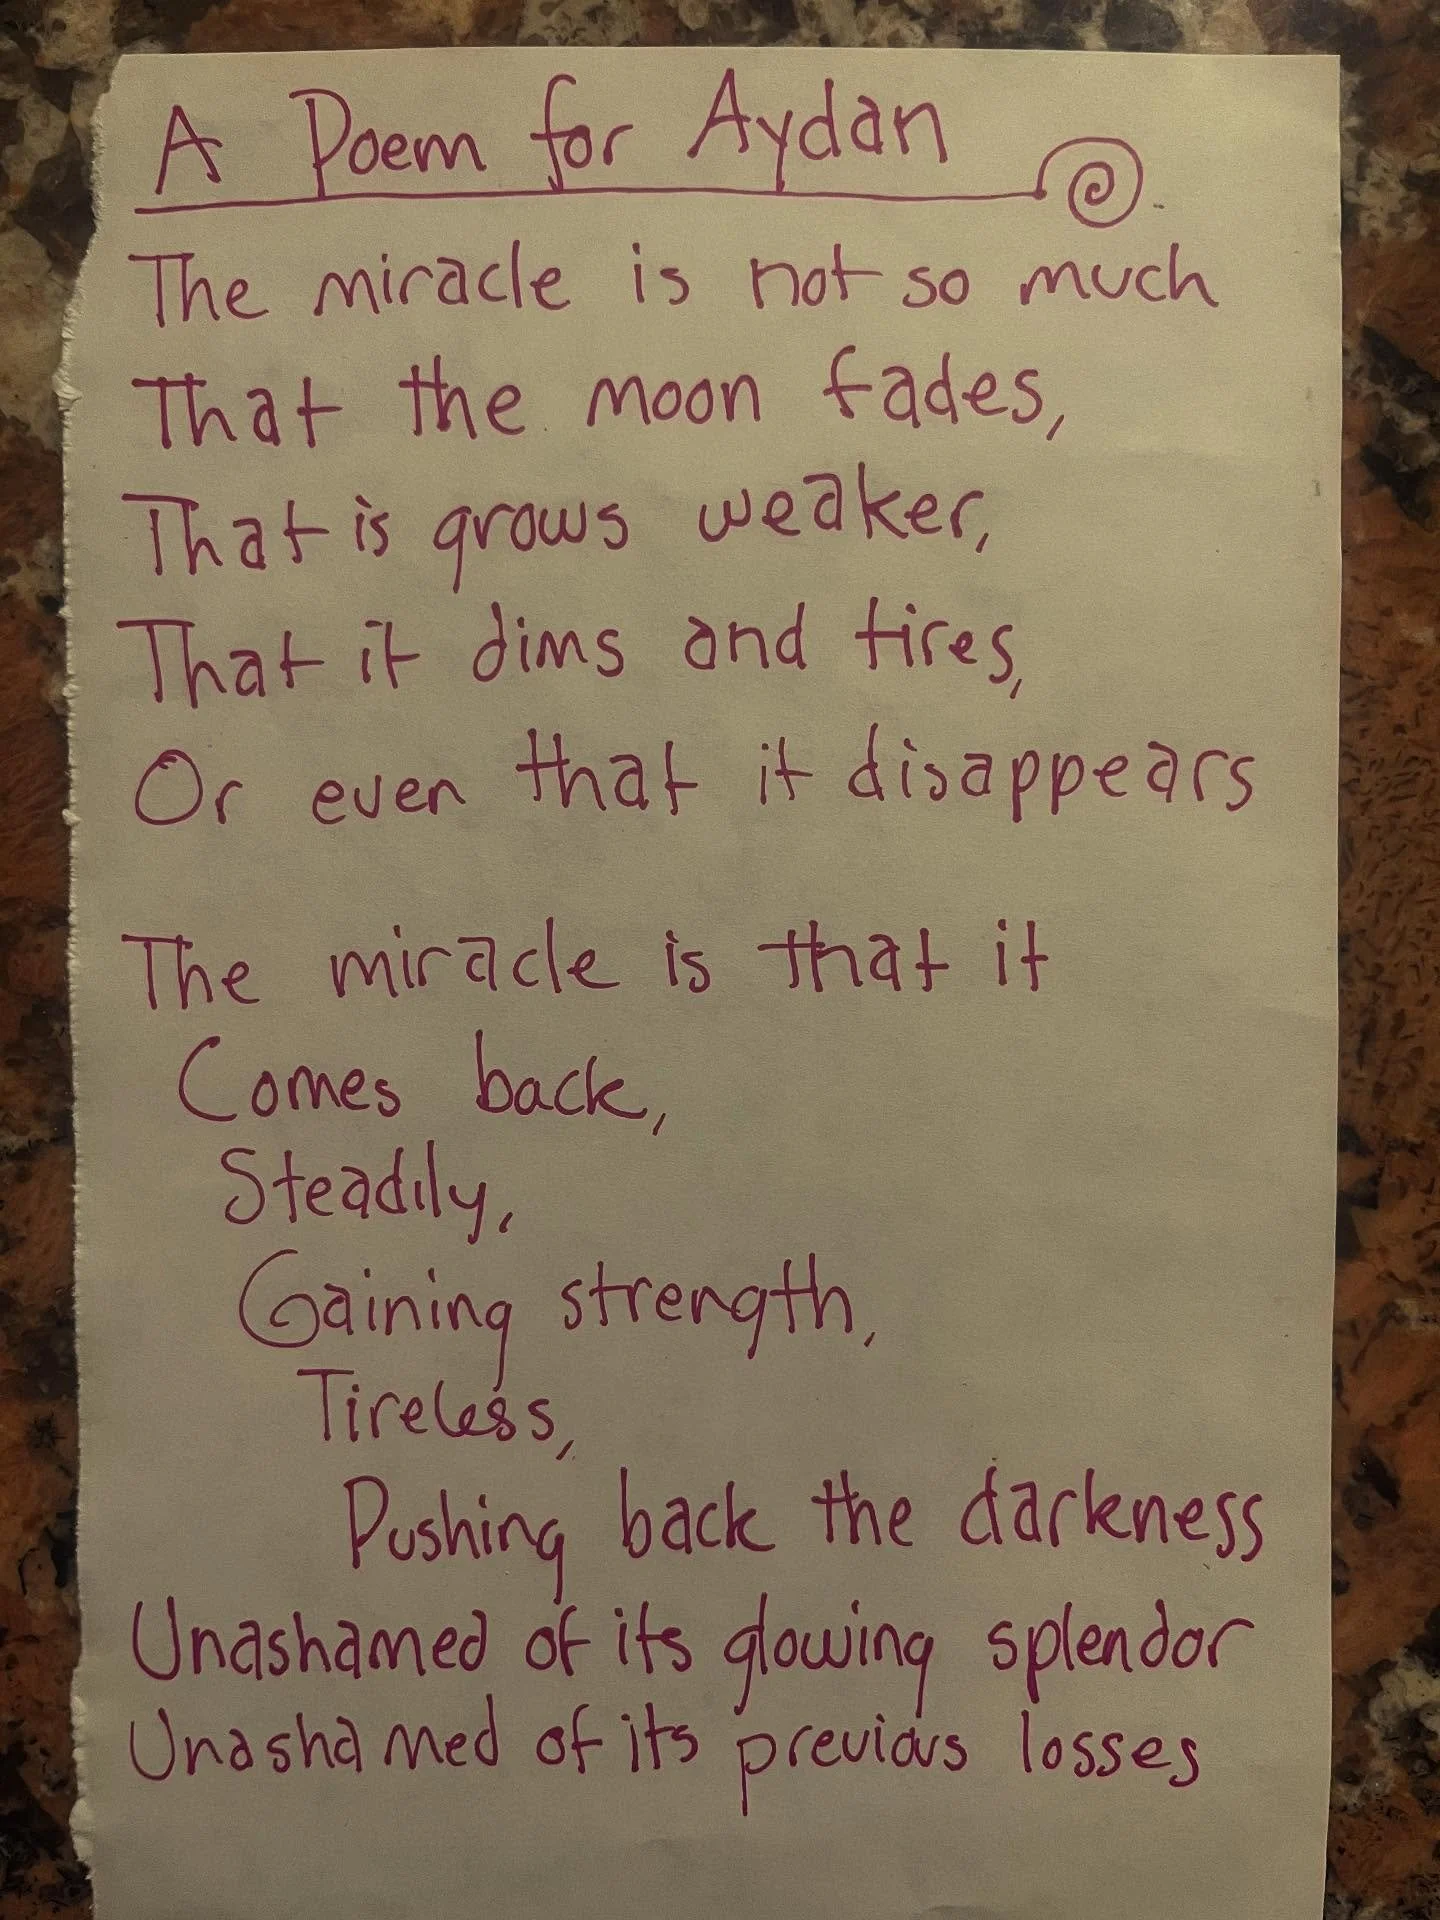 A Poem for Aydan
The miracle is not so much
That the moon fades,
That is grows weaker,
That it dims and tires,
Or even that it disappears
The miracle is that it
Comes back,
Steadily,
Gaining strength,
Tireless,
Pushing back the darkness
Unashamed of its glowing splendor
Unashamed of its previous losses